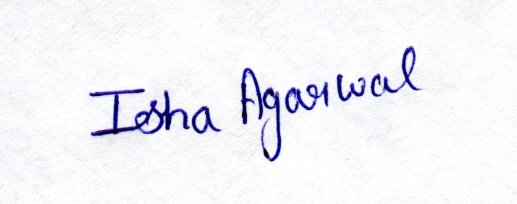 Isha Agarwal